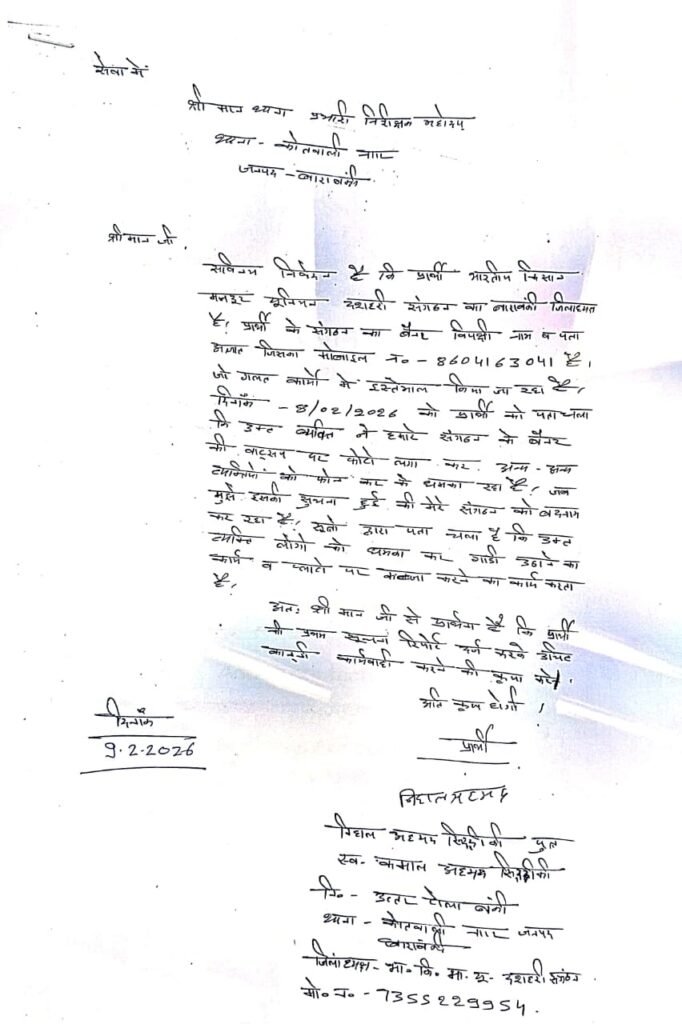 सेवा में
श्री मान थाना प्रभारी निरीक्षक महोदय
थाना - कोतवाली नगर
जनपद - बाराबंकी
श्री मान जी,
सविनय निवेदन है कि प्रार्थी भारतीय किसान
मजदूर यूनियन दशहरी संगठन का बाराबंकी जिलाध्यक्ष
है। प्रार्थी के संगठन का बैनर विपक्षी नाम व पता
अज्ञात जिसका मोबाइल न० - 8604163041 है।
जो गलत कार्यो में इस्तेमाल किया जा रहा है।
दिनाँक - 8/02/2026 को प्रार्थी को पता चला
कि उक्त व्यक्ति ने हमारे संगठन के बैनर
की वाट्सप पर फोटो लगा कर अन्य - अन्य
व्यक्तियों को फोन कर के धमका रहा है। जब
मुझे इसकी सुचना हुई की मेरे संगठन को बदनाम
कर रहा है। सूत्रो द्वारा पता चला है कि उक्त
व्यक्ति लोगो को धमका कर गाडी उठाने का
कार्य व प्लाटो पर कब्जा करने का कार्य करता
है।
अतः श्री मान जी से प्रार्थना है कि प्रार्थी
की प्रथम सूचना रिपोर्ट दर्ज करके उचित
कानूनी कार्यवाही करने की कृपा करें।
अति कृपा होगी।
दिनाँक
9.2.2026
प्रार्थी
निहाल अहमद
निहाल अहमद सिद्दीकी पुत्र
स्व- कमाल अहमद सिद्दीकी
नि०- उत्तर टोला बंकी
थाना - कोतवाली नगर जनपद
बाराबंकी
जिलाध्यक्ष - भा० कि० मा० यू० - दशहरी संगठन
मो० न० - 7355229954.